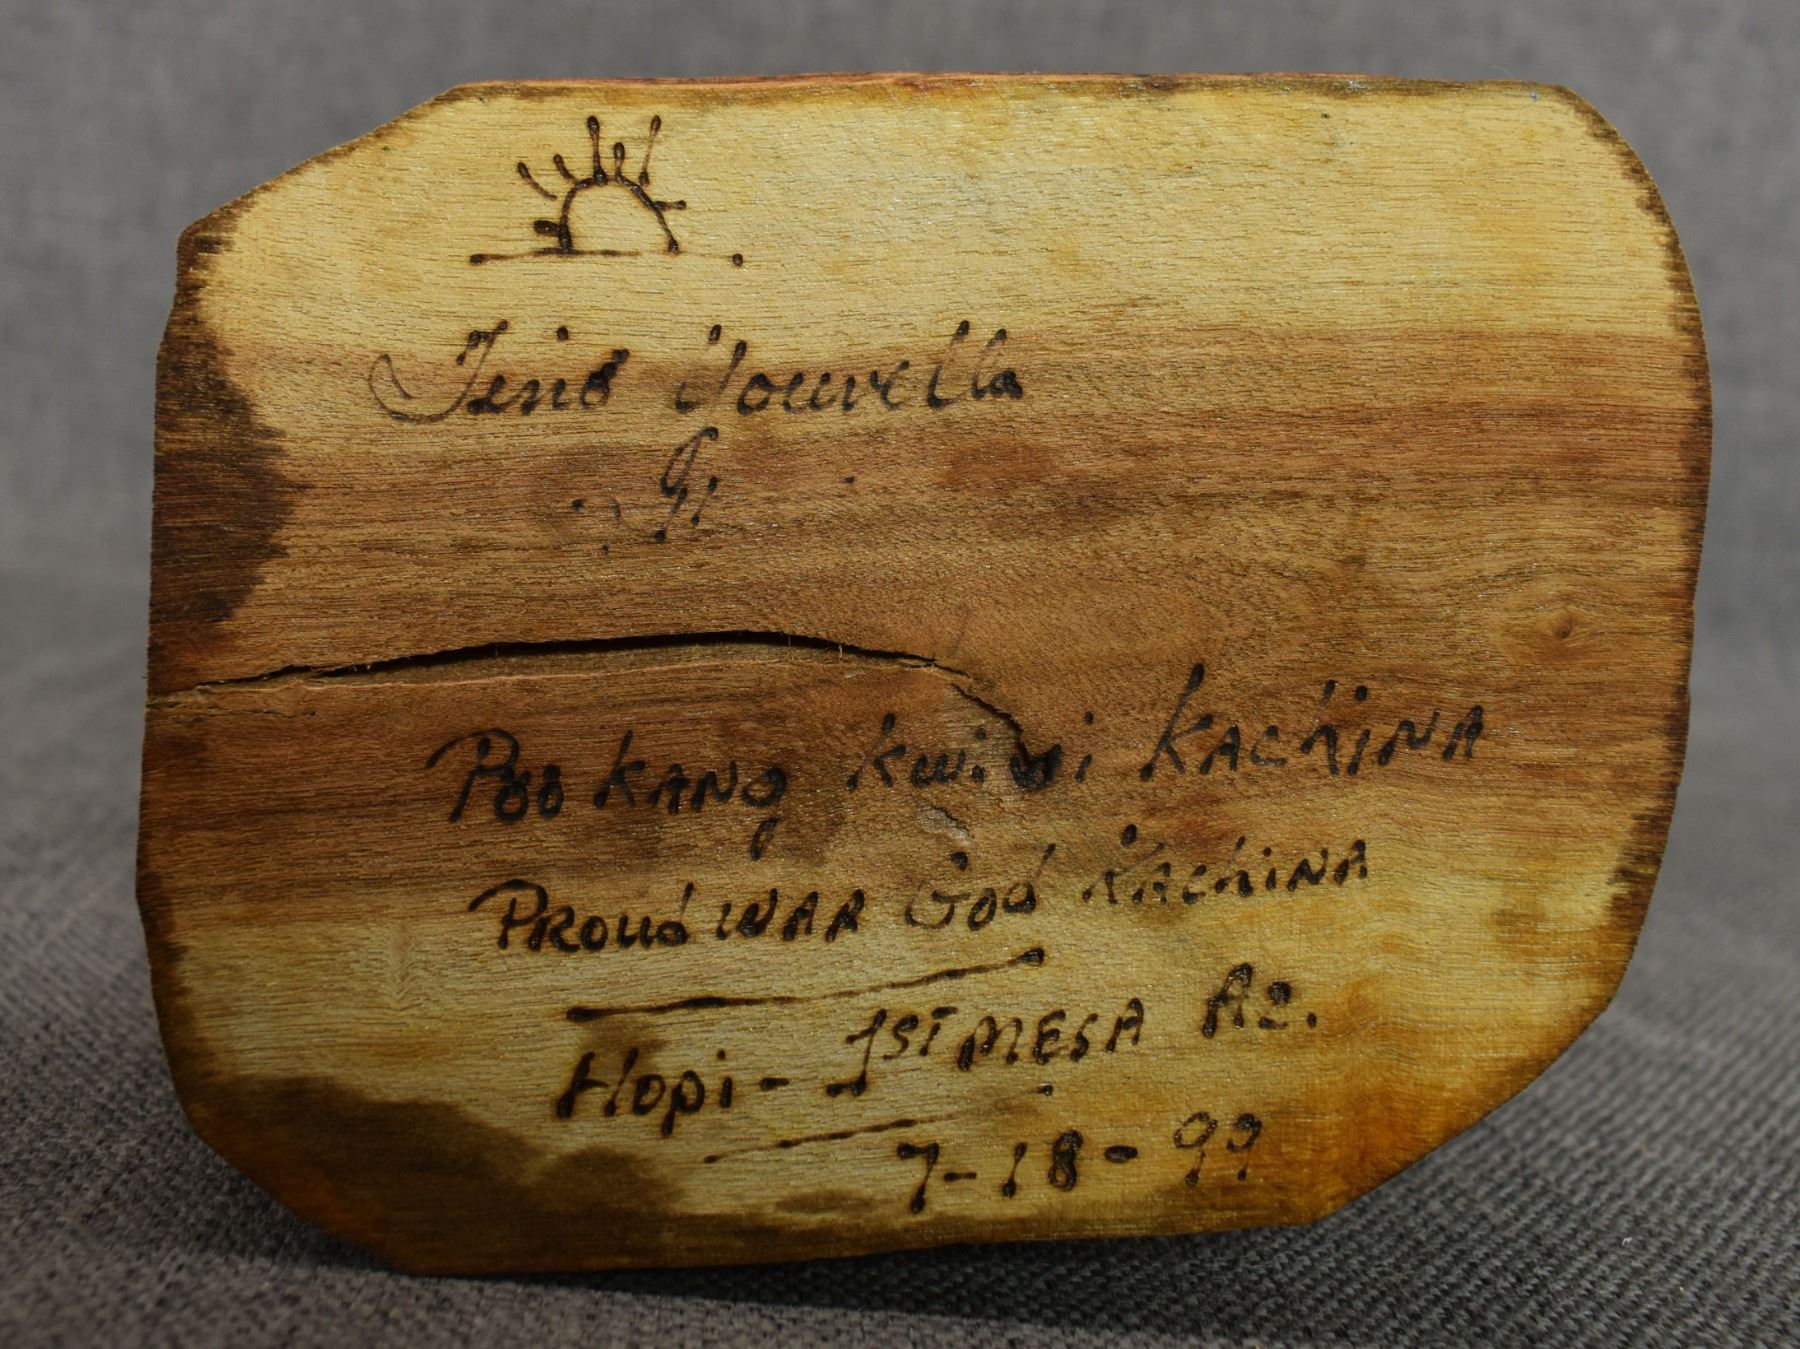 Tino Youvella
Pöökang Kwivi Kachina
Proud War God Kachina
Hopi - 1st Mesa Az.
7-18-99